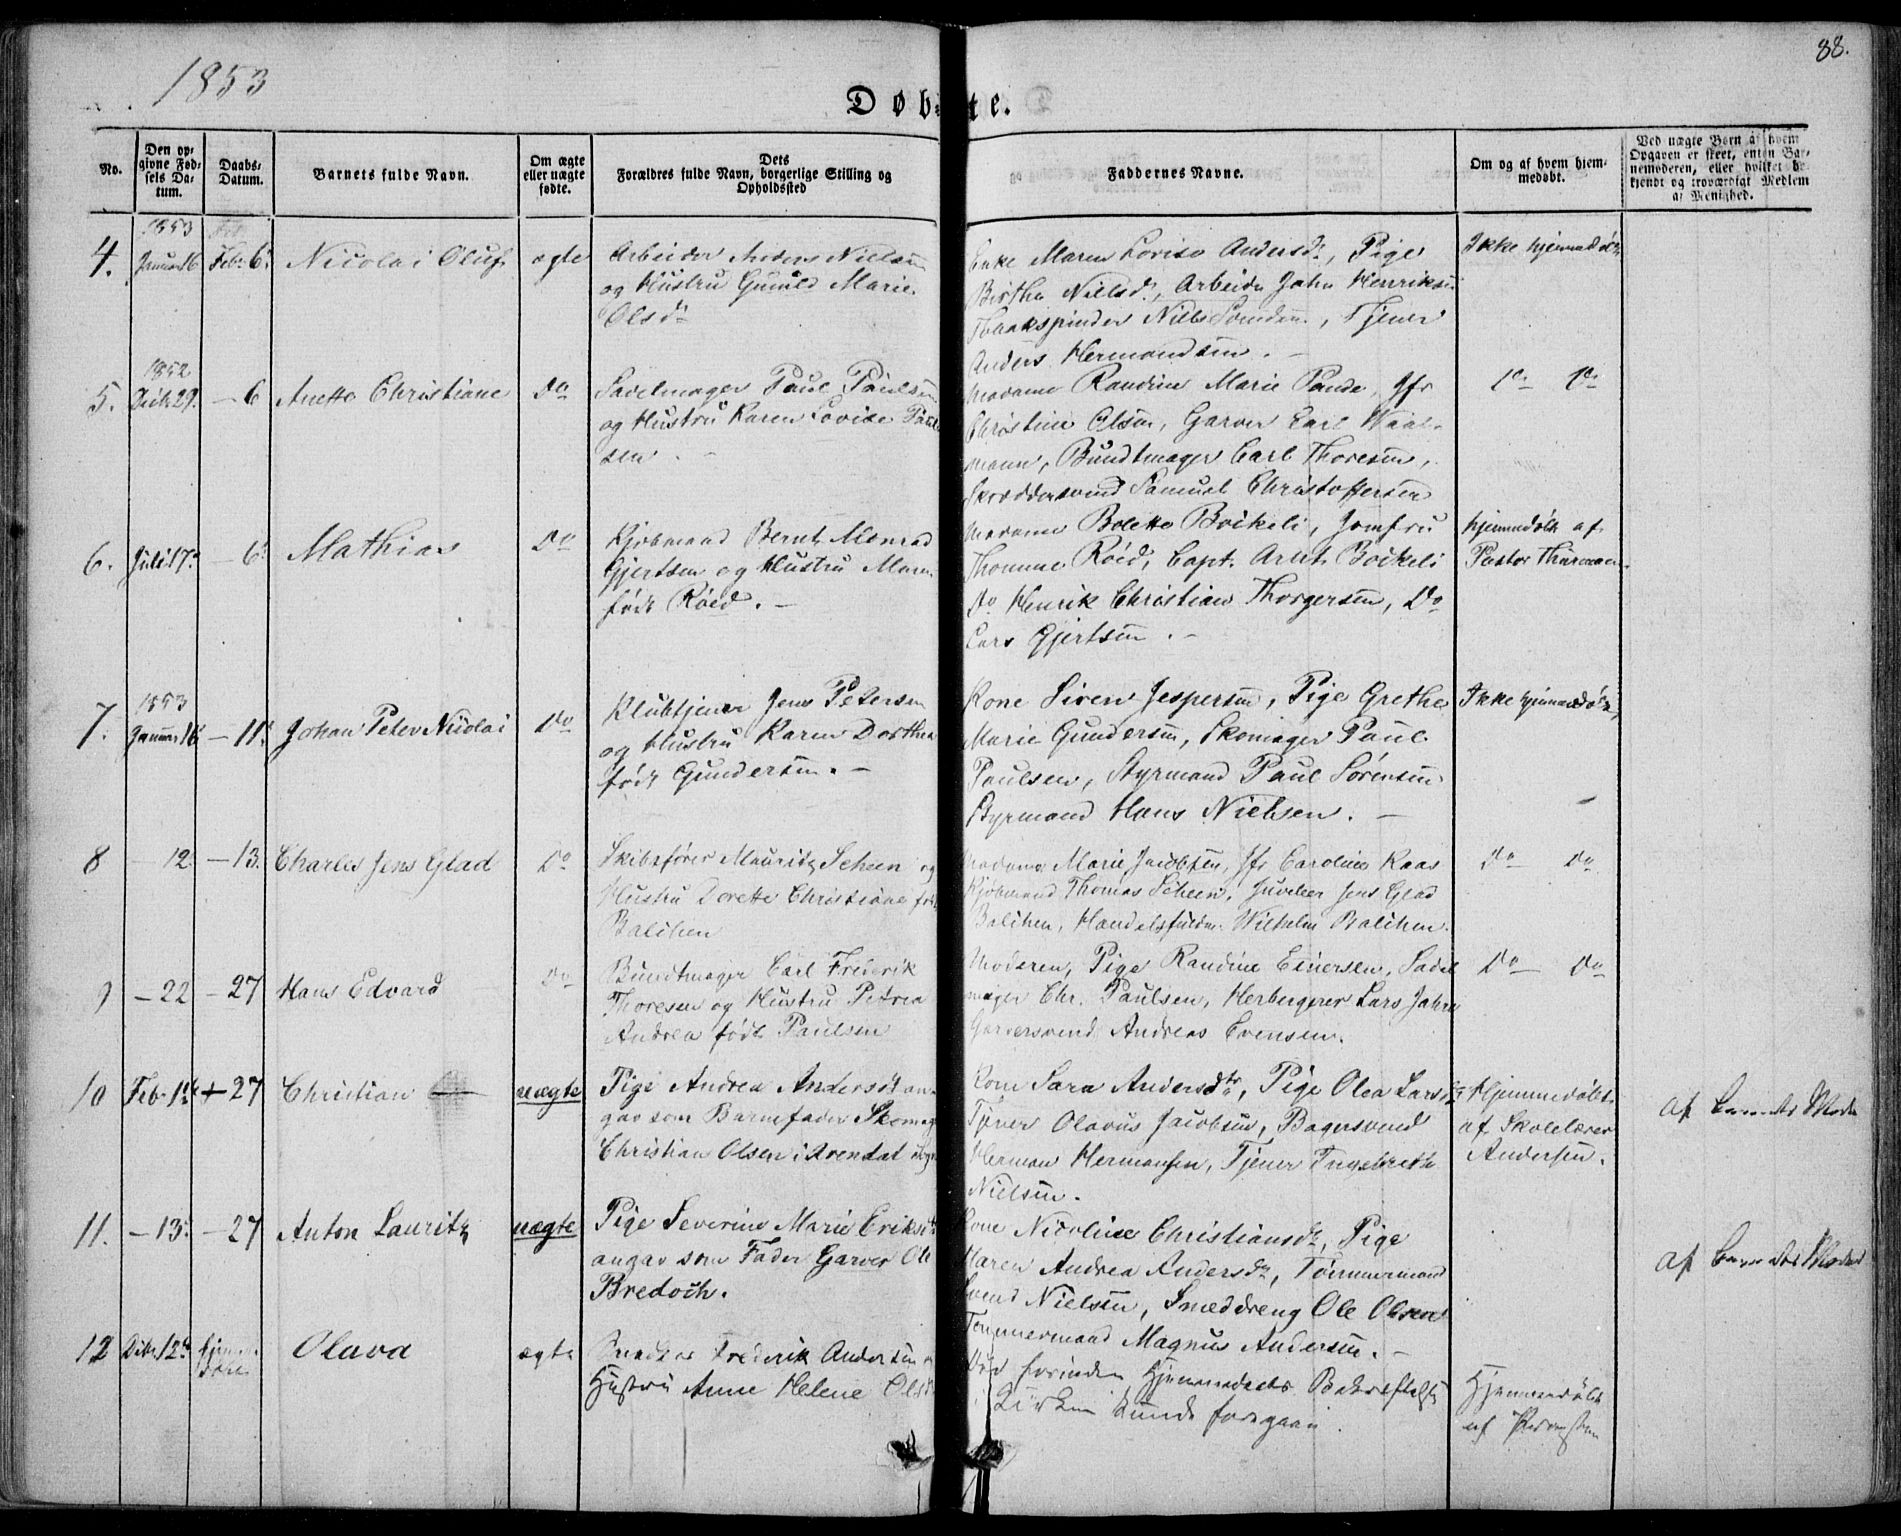 88.
1853
Døbte.
No.
Den opgivne Fødsels Datum.
Daabs-Datum.
Barnets fulde Navn.
Om ægte eller uægte fødte.
Dets Forældres fulde Navn, borgerlige Stilling og Opholdssted
Faddernes Navne.
Om og af hvem hjemmedøbt.
Ved uægte Børn af hvem Opgaven er skeet, enten Barnemoderen, eller hvilket bekjendt og troværdigt Medlem af Menighed.
4. 1853 Januar 16 Feb. 6. Nicolai Oluf ægte
Arbeider Anders Nielsen
og Hustru Gunild Marie
Olsd.
Enke Maren Lovise Andersd., Pige
Birthe Nielsd., Arbeider John Henriksen
Tobakspinder Niels , Tjener
Anders Hermandsen. —
Ikke hjemmedøbt
5. 1852 Dcbr 29. — 6 Anette Christiane Do
Sadelmager Paul Paulsen
og Hustru Karen Lovise Paul-
sen. —
Madame Randine Marie Pande, Jfr
Christine Olsen, Garver Carl Waal-
mann, Bundtmager Carl Thoresen,
Skræddersvend Samuel Christoffersen
Do Do
6. Juli 17. — 6. Mathias Do
Kjøbmand Bernt Monrad
Gjertsen og Hustru Maren
født Røed. —
Madame Bolette Boikeli, Jomfru
Thomine Røid, Capt. Arnt Boikeli
Do Henrik Christian Thorgersen, Do
Lars Gjertsen. —
hjemmedøbt af
Pastor Thurmann.
7. 1853 Januar 16 — 11. Johan Peter Nicolai Do
Klubtjener Jens Petersen
og Hustru Karen Dorthea
født Gundersen. —
Kone Siren Jespersen, Pige Grethe
Marie Gundersen, Skomager Paul
Paulsen, Styrmand Paul Sørensen
Styrmand Hans Nielsen. —
Ikke hjemmedøbt
8 — 12 — 13. Charles Jens Glad Do
Skibsfører Mauritz Scheen og
Hustru Dorette Christiane født
Balchen
Madame Marie Jacobsen, Jfr Caroline Kaas
Kjøbmand Thomas Scheen, Juveleer Jens Glad
Balchen, Handelsfuldm. Wilhelm Balchen.
Do Do
9 — 22 — 27 Hans Edvard Do
Bundtmager Carl Frederik
Thoresen og Hustru Petrea
Andrea født Paulsen
Moderen, Pige Randine Einersen, Sadel
mager Chr. Paulsen, Herbergerer Lars Jahn
Garversvend Andreas Evensen.
Do Do
10 Feb. 1 — 27 Christian uægte
Pige Andrea Andersdt an-
gav som Barnefader Skomag
Christian Olsen i Arendal
Kone Sara Andersdtr, Pige Olea Larsd
Tjener Olavus Jacobsen, Bagersvend
Herman Hermansen, Tjener Ingebreth
Nielsen.
Hjemmedøbt
af Skolelærer
Andersen.
af Barnets Moder
11. — 13. — 27 Anton Lauritz uægte
Pige Severine Marie Eriksdt
angav som Fader Garver Ole
Bredoch.
Kone Nicoline Christiansd., Pige
Maren Andrea Andersd., Tømmermand
Svend Nielsen, Smeddreng Ole Olsen
Tømmermand Magnus Andersen. —
af Barnets Moder
12 Dcbr. 12 hjemme døbt Olava ægte
Frederik Andersen
Hustru Anne Helene Olsd
Død forinden Hjemmedaabs Bekræftelse
i Kirken kunde foregaaei
Hjemmedøbt
af